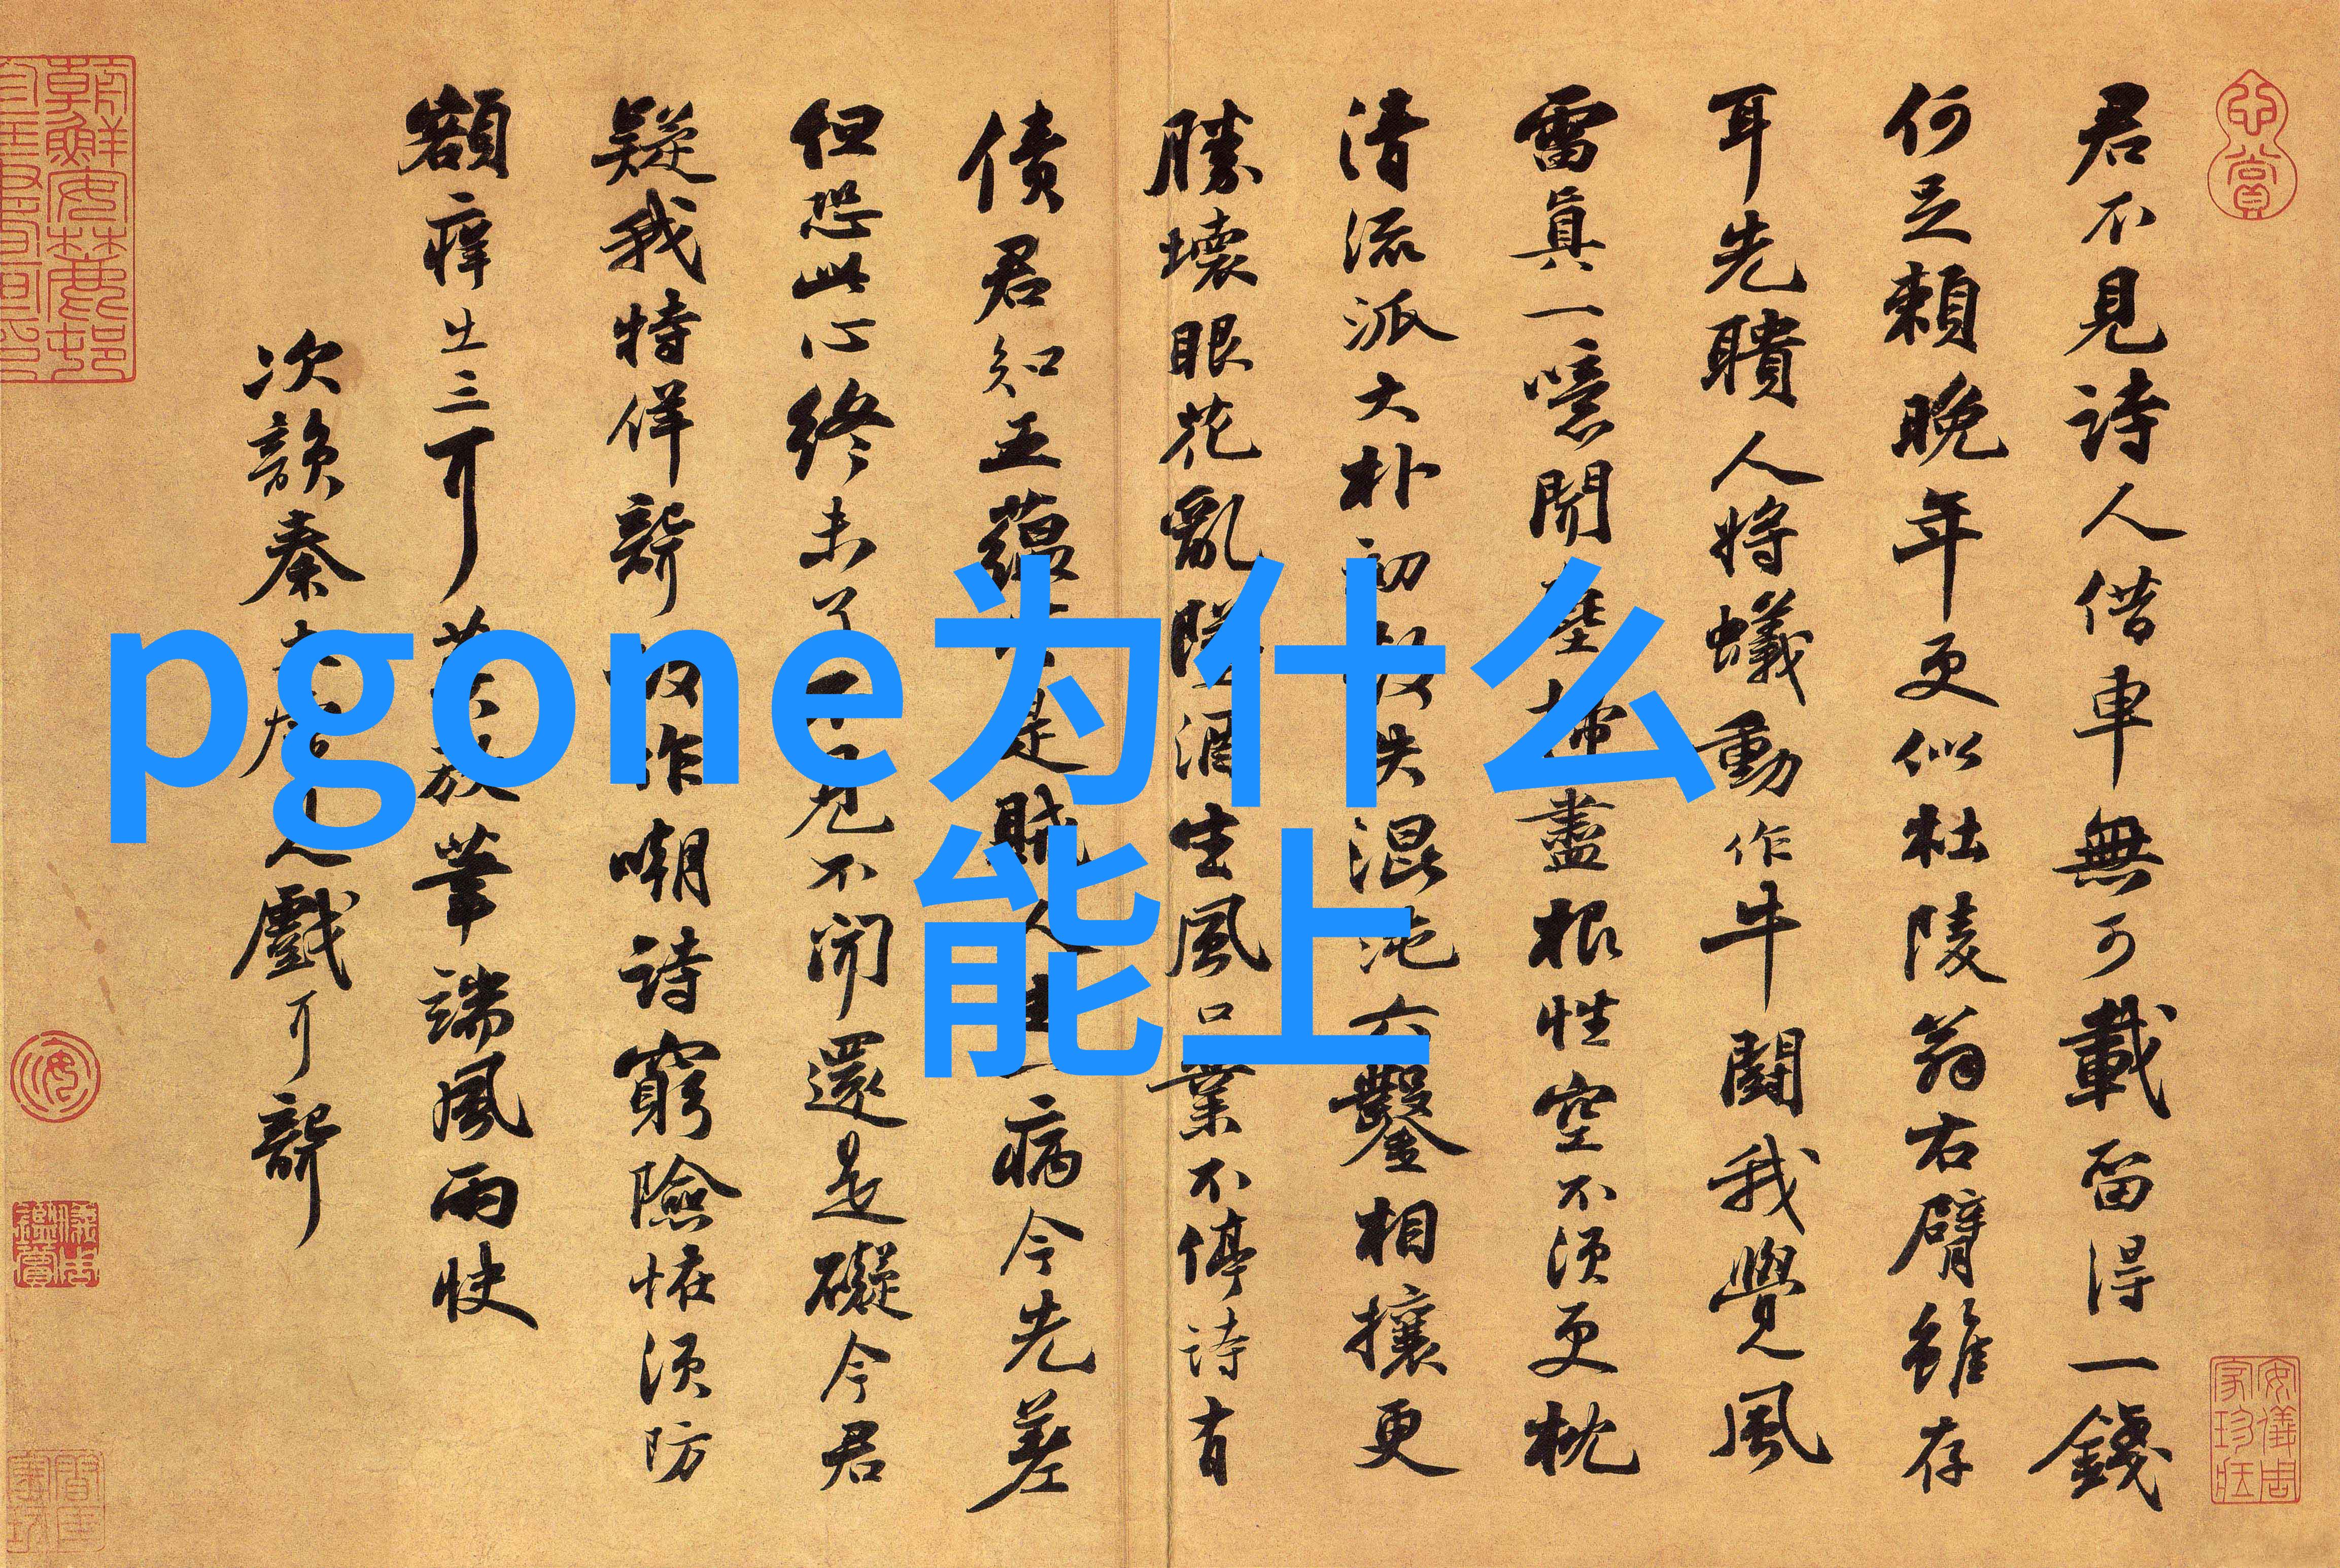 君不見詩人借車無可載留得一錢
何足賴晚年更似杜陵翁右臂雖存
耳先聵人將蟻動作牛鬪我覺風
雷真一噫聞塵掃盡根性空不須更枕
清流派大朴初散失混沌六鑿相攘更
勝壞眼花亂墜酒生風口業不停詩有
債君知五蘊皆是賊人生一病今先差
但恐此心終未了不見不聞還是礙今君
疑我特佯聾故作嘲詩窮險怪須防
額癢出三耳莫放筆端風雨快
次韻秦太虛見戲耳聾
pgone为什么
能上